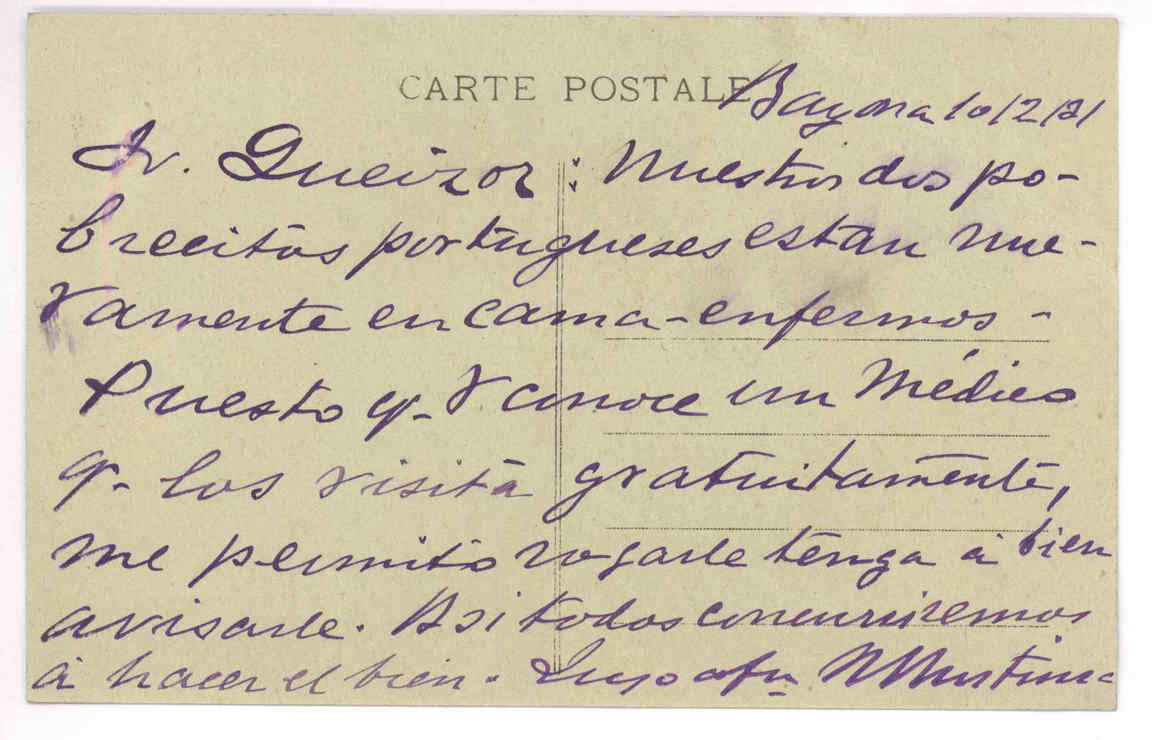 CARTE POSTALE
Bayona 10/2/21
Sr. Queizor: Nuestros dos po-
brecitos portugueses estan nue-
vamente en cama-enfermos-
Puesto q. V. conoce un Médico
q. los visita gratuitamente,
me permito rogarle tenga á bien
avisarle. Asi todos concurriremos
á hacer el bien. Suyo afm